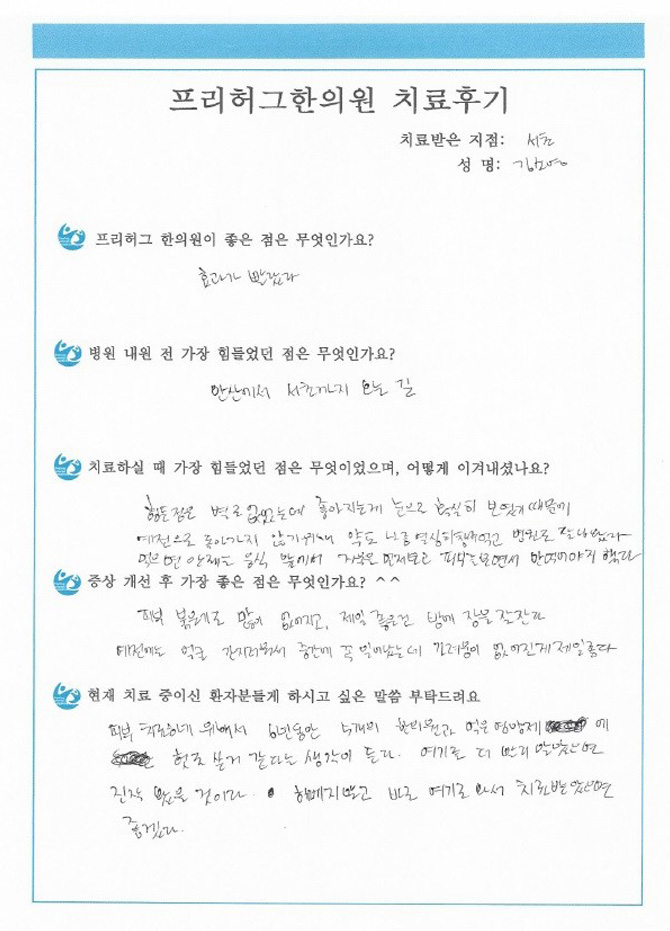 프리허그한의원 치료후기
치료받은 지점: 서초
성 명: 김보영
프리허그 한의원이 좋은 점은 무엇인가요?
효과가 빨랐다
병원 내원 전 가장 힘들었던 점은 무엇인가요?
안산에서 서초까지 오는 길
치료하실 때 가장 힘들었던 점은 무엇이었으며, 어떻게 이겨내셨나요?
힘든점은 별로 없었는데 좋아지는게 눈으로 확실히 보였기 때문에
예전으로 돌아가지 않기위해 약도 나름 열심히 챙겨먹고 병원도 잘 나왔다
먹으면 안되는 음식 앞에서 거울을 먼저보고 피부를보면서 안먹어야지 했다
증상 개선 후 가장 좋은 점은 무엇인가요? ^^
피부 붉은기도 많이 없어지고, 제일 좋은건 밤에 잠을 잘잔다
예전에는 얼굴 간지러워서 중간에 꼭 일어났는데 가려움이 없어진게 제일좋다
현재 치료 중이신 환자분들게 하시고 싶은 말씀 부탁드려요
피부 치료하기 위해서 6년동안 5개의 한의원과 먹은 영양제 에
헛돈 쓴거 같다는 생각이 든다. 여기로 더 빨리 알았으면
진작 왔을 것이다. 헤매지않고 바로 여기로 와서 치료받았으면
좋겠다.